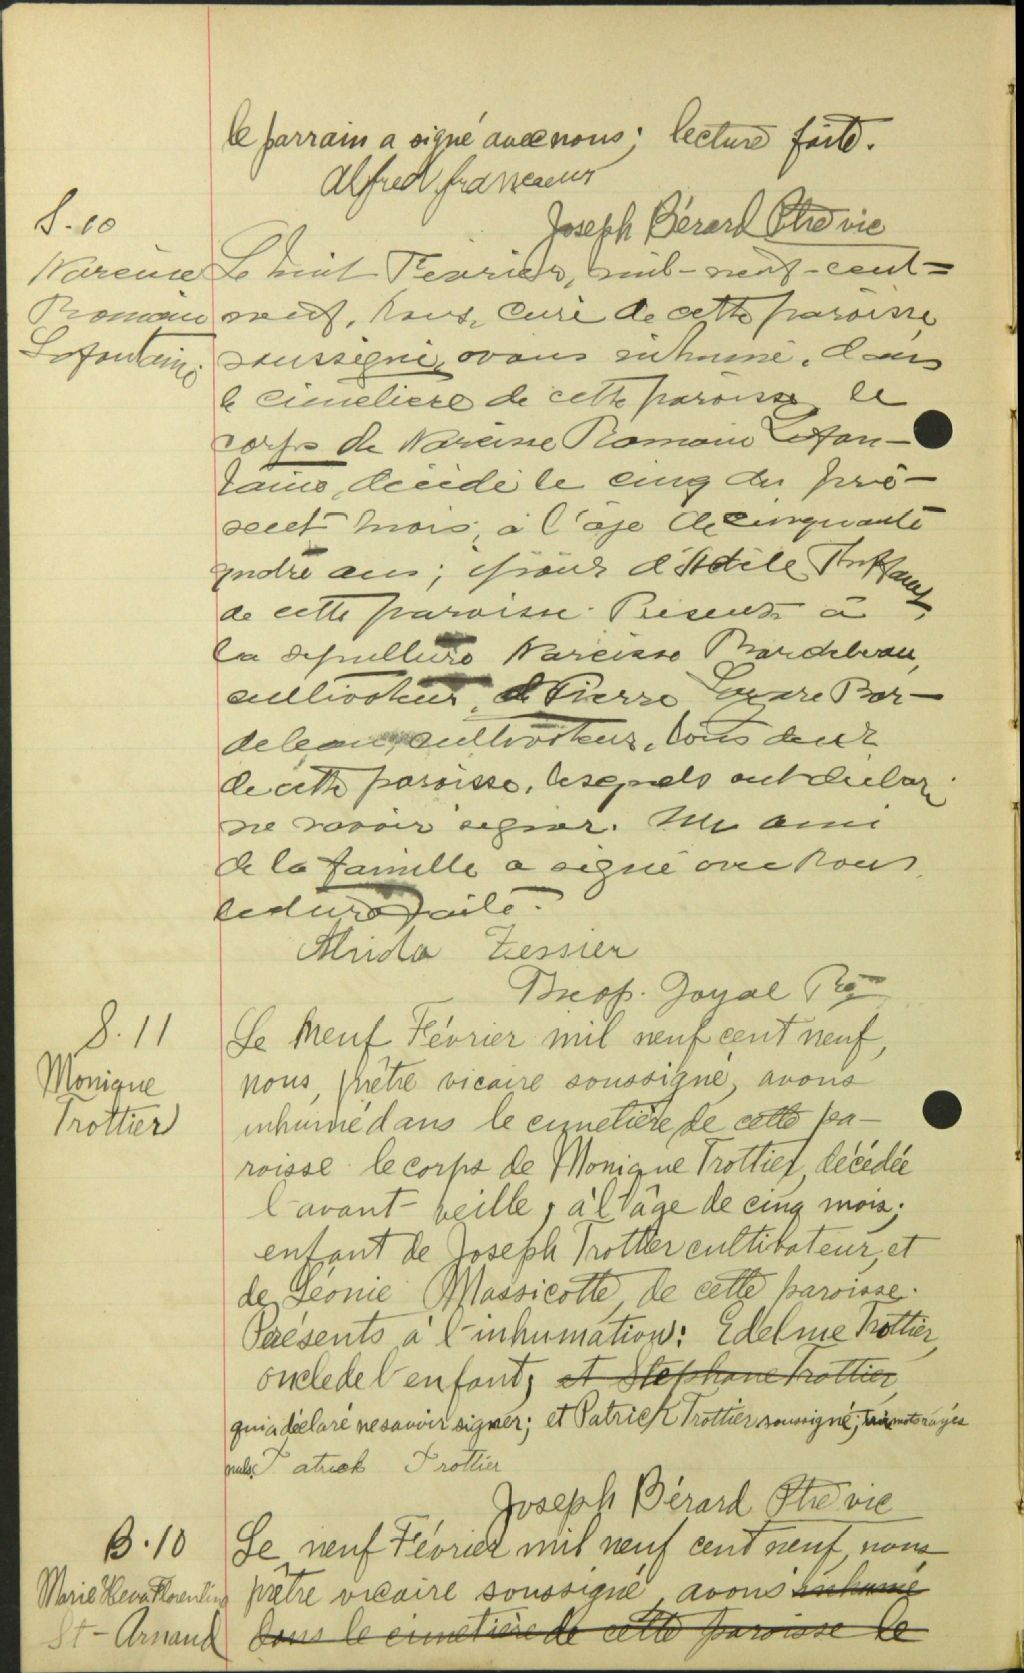 le parrain a signé avec nous; lecture faite.
Alfred francoeur
Joseph Bérard Ptre vic
S-10
Narcisse
Romain
Lafontaine
Le huit Février, mil-neuf-cent-
neuf, Nous, curé de cette paroisse
soussigné, avons inhumé, dans
le cimetière de cette paroisse, le
corps de Narcisse Romain Lafon-
taine, décédé le cinq du pré-
sent mois, à l'âge de cinquante
quatre ans; époux d'Adèle
de cette paroisse. Présents à
la sépulture Narcisse Bordeleau,
cultivateur, et Pierre Lazare Bor-
deleau, cultivateur, tous deux
de cette paroisse, lesquels ont déclaré
ne savoir signer. Un ami
de la famille a signé avec nous
lecture faite.
Alrida Tessier
Prosp. Goyal
S. 11
Monique
Trottier
Le Neuf Février mil neuf cent neuf,
nous, prêtre vicaire soussigné, avons
inhumé dans le cimetière de cette pa-
roisse le corps de Monique Trottier, décédée
l'avant-veille, à l'âge de cinq mois;
enfant de Joseph Trottier cultivateur, et
de Léonie Massicotte, de cette paroisse.
Présents à l'inhumation: Edelme Trottier,
oncle de l'enfant; et Stephane Trottier,
qui a déclaré ne savoir signer; et Patrick Trottier soussigné; trois mots rayés
nuls. Patrick Trottier
Joseph Bérard Ptre vic
B.10
Marie Heva Florentine
St-Arnaud
Le neuf Février mil neuf cent neuf, nous
prêtre vicaire soussigné, avons inhumé
dans le cimetière de cette paroisse le